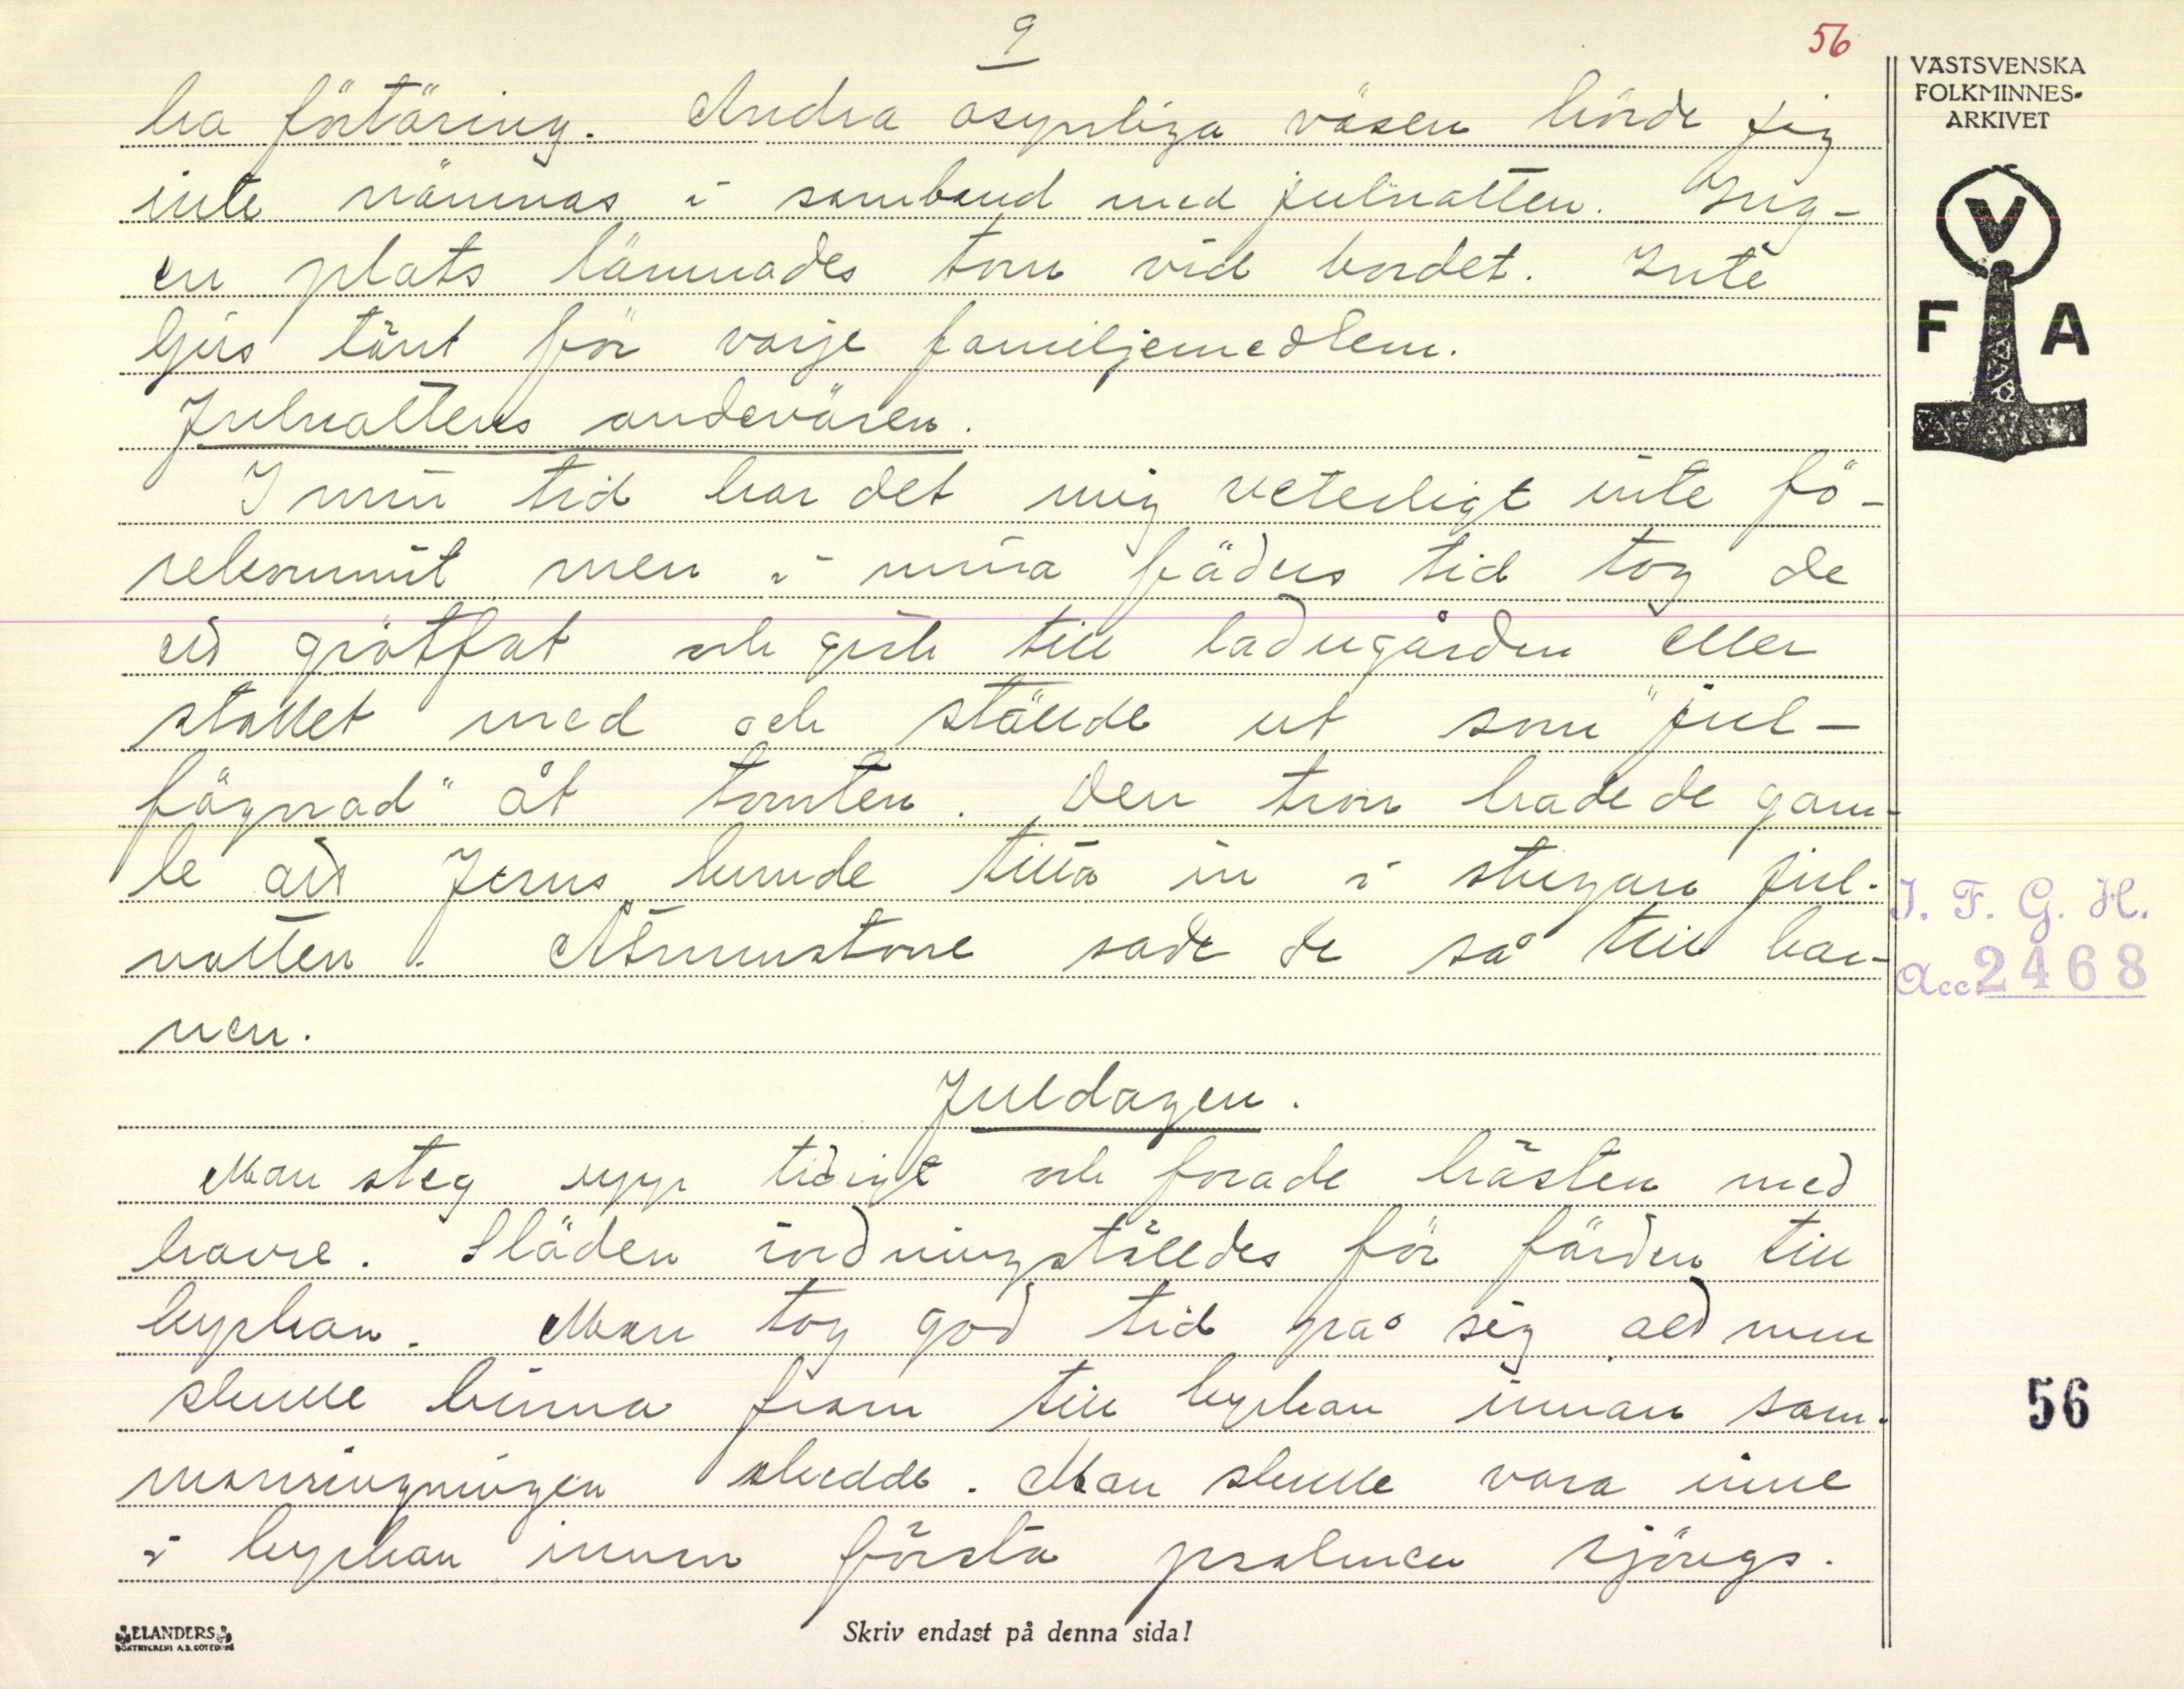 9
56
ha förtäring. Andra osynliga väsen hörde jag
inte nämnas i samband med julnatten. Ing-
en plats lämnades tom vid bordet. Inte
ljus tänt för varje familjemedlem.
Julnattens andeväsen.
I min tid har det mig veterligt inte fö-
rekommit men i mina fäders tid tog de
ett grötfat och gick till ladugården eller
stallet med och ställde ut som "jul-
fägnad" åt tomten. Den tron hade de gam-
le att Jesus kunde titta in i stugan jul-
natten. Åtminstone sade de så till bar-
nen.
Juldagen.
Man steg upp tidigt och forade hästen med
havre. Släden iordningställdes för färden till
kyrkan. Man tog god tid på sig att man
skulle hinna fram till kyrkan innan sam-
manringningen skedde. Man skulle vara inne
i kyrkan innan första psalmen sjöngs.
VÄSTSVENSKA
FOLKMINNES-
ARKIVET
V
F A
I. F. G. H.
Acc. 2468
56
ELANDERS
BOKTRYCKERI A.B. GÖTEBORG
Skriv endast på denna sida!